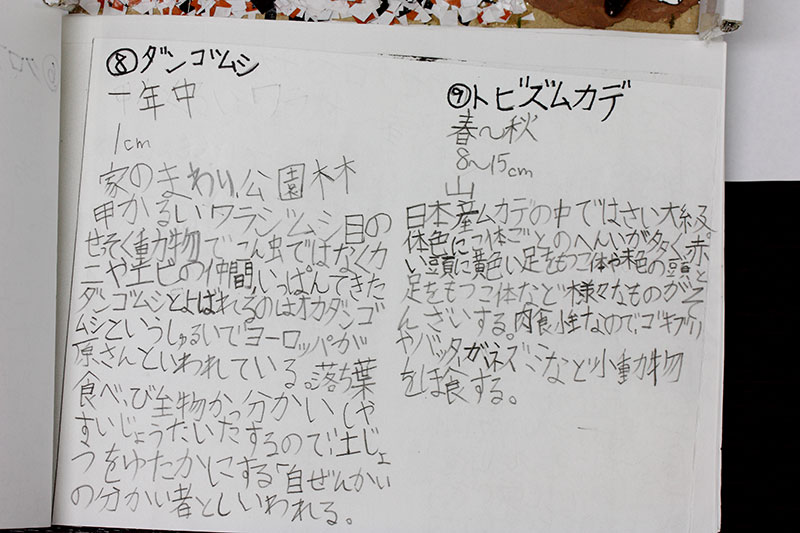 ⑧ダンゴムシ
一年中
1cm
家のまわり、公園、林
甲かるいワラジムシ目の
せそく動物でこん虫ではなくカ
ニやエビの仲間、いっぱんてきた
ダンゴムシとよばれるのはオカダンゴ
ムシというしゅるいでヨーロッパが
原さんといわれている。落ち葉
食べ、び生物かっ分かいしや
すいじょうたいたするので、土じょ
うをゆたかにする「自ぜんかい
の分かい者としいわれる。
⑨トビズムカデ
春〜秋
8〜15cm
山
日本産ムカデの中ではさい大級
体色にこ体ごとのへんいが多く、赤
い頭に黄色い足をもつこ体や朱色の頭と
足をもつこ体など様々なものがそ
んざいする。肉食性なので、ゴキブリ
やバッタガネズミなど小動物
をほ食する。